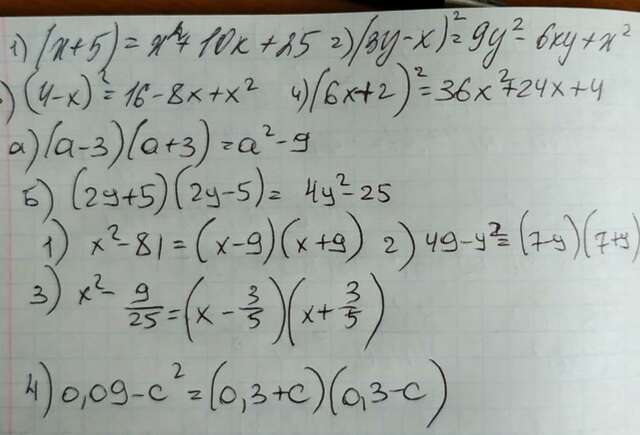 1) (x+5) = x²+ 10x + 25 2) (3y-x)² = 9y² - 6xy + x²
) (4-x)² = 16 - 8x + x² 4) (6x+2)² = 36x² + 24x + 4
а) (a-3)(a+3) = a² - 9
б) (2y+5)(2y-5) = 4y² - 25
1) x² - 81 = (x-9)(x+9) 2) 49 - y² = (7-y)(7+y)
3) x² - 9/25 = (x - 3/5)(x + 3/5)
4) 0,09 - c² = (0,3+c)(0,3-c)